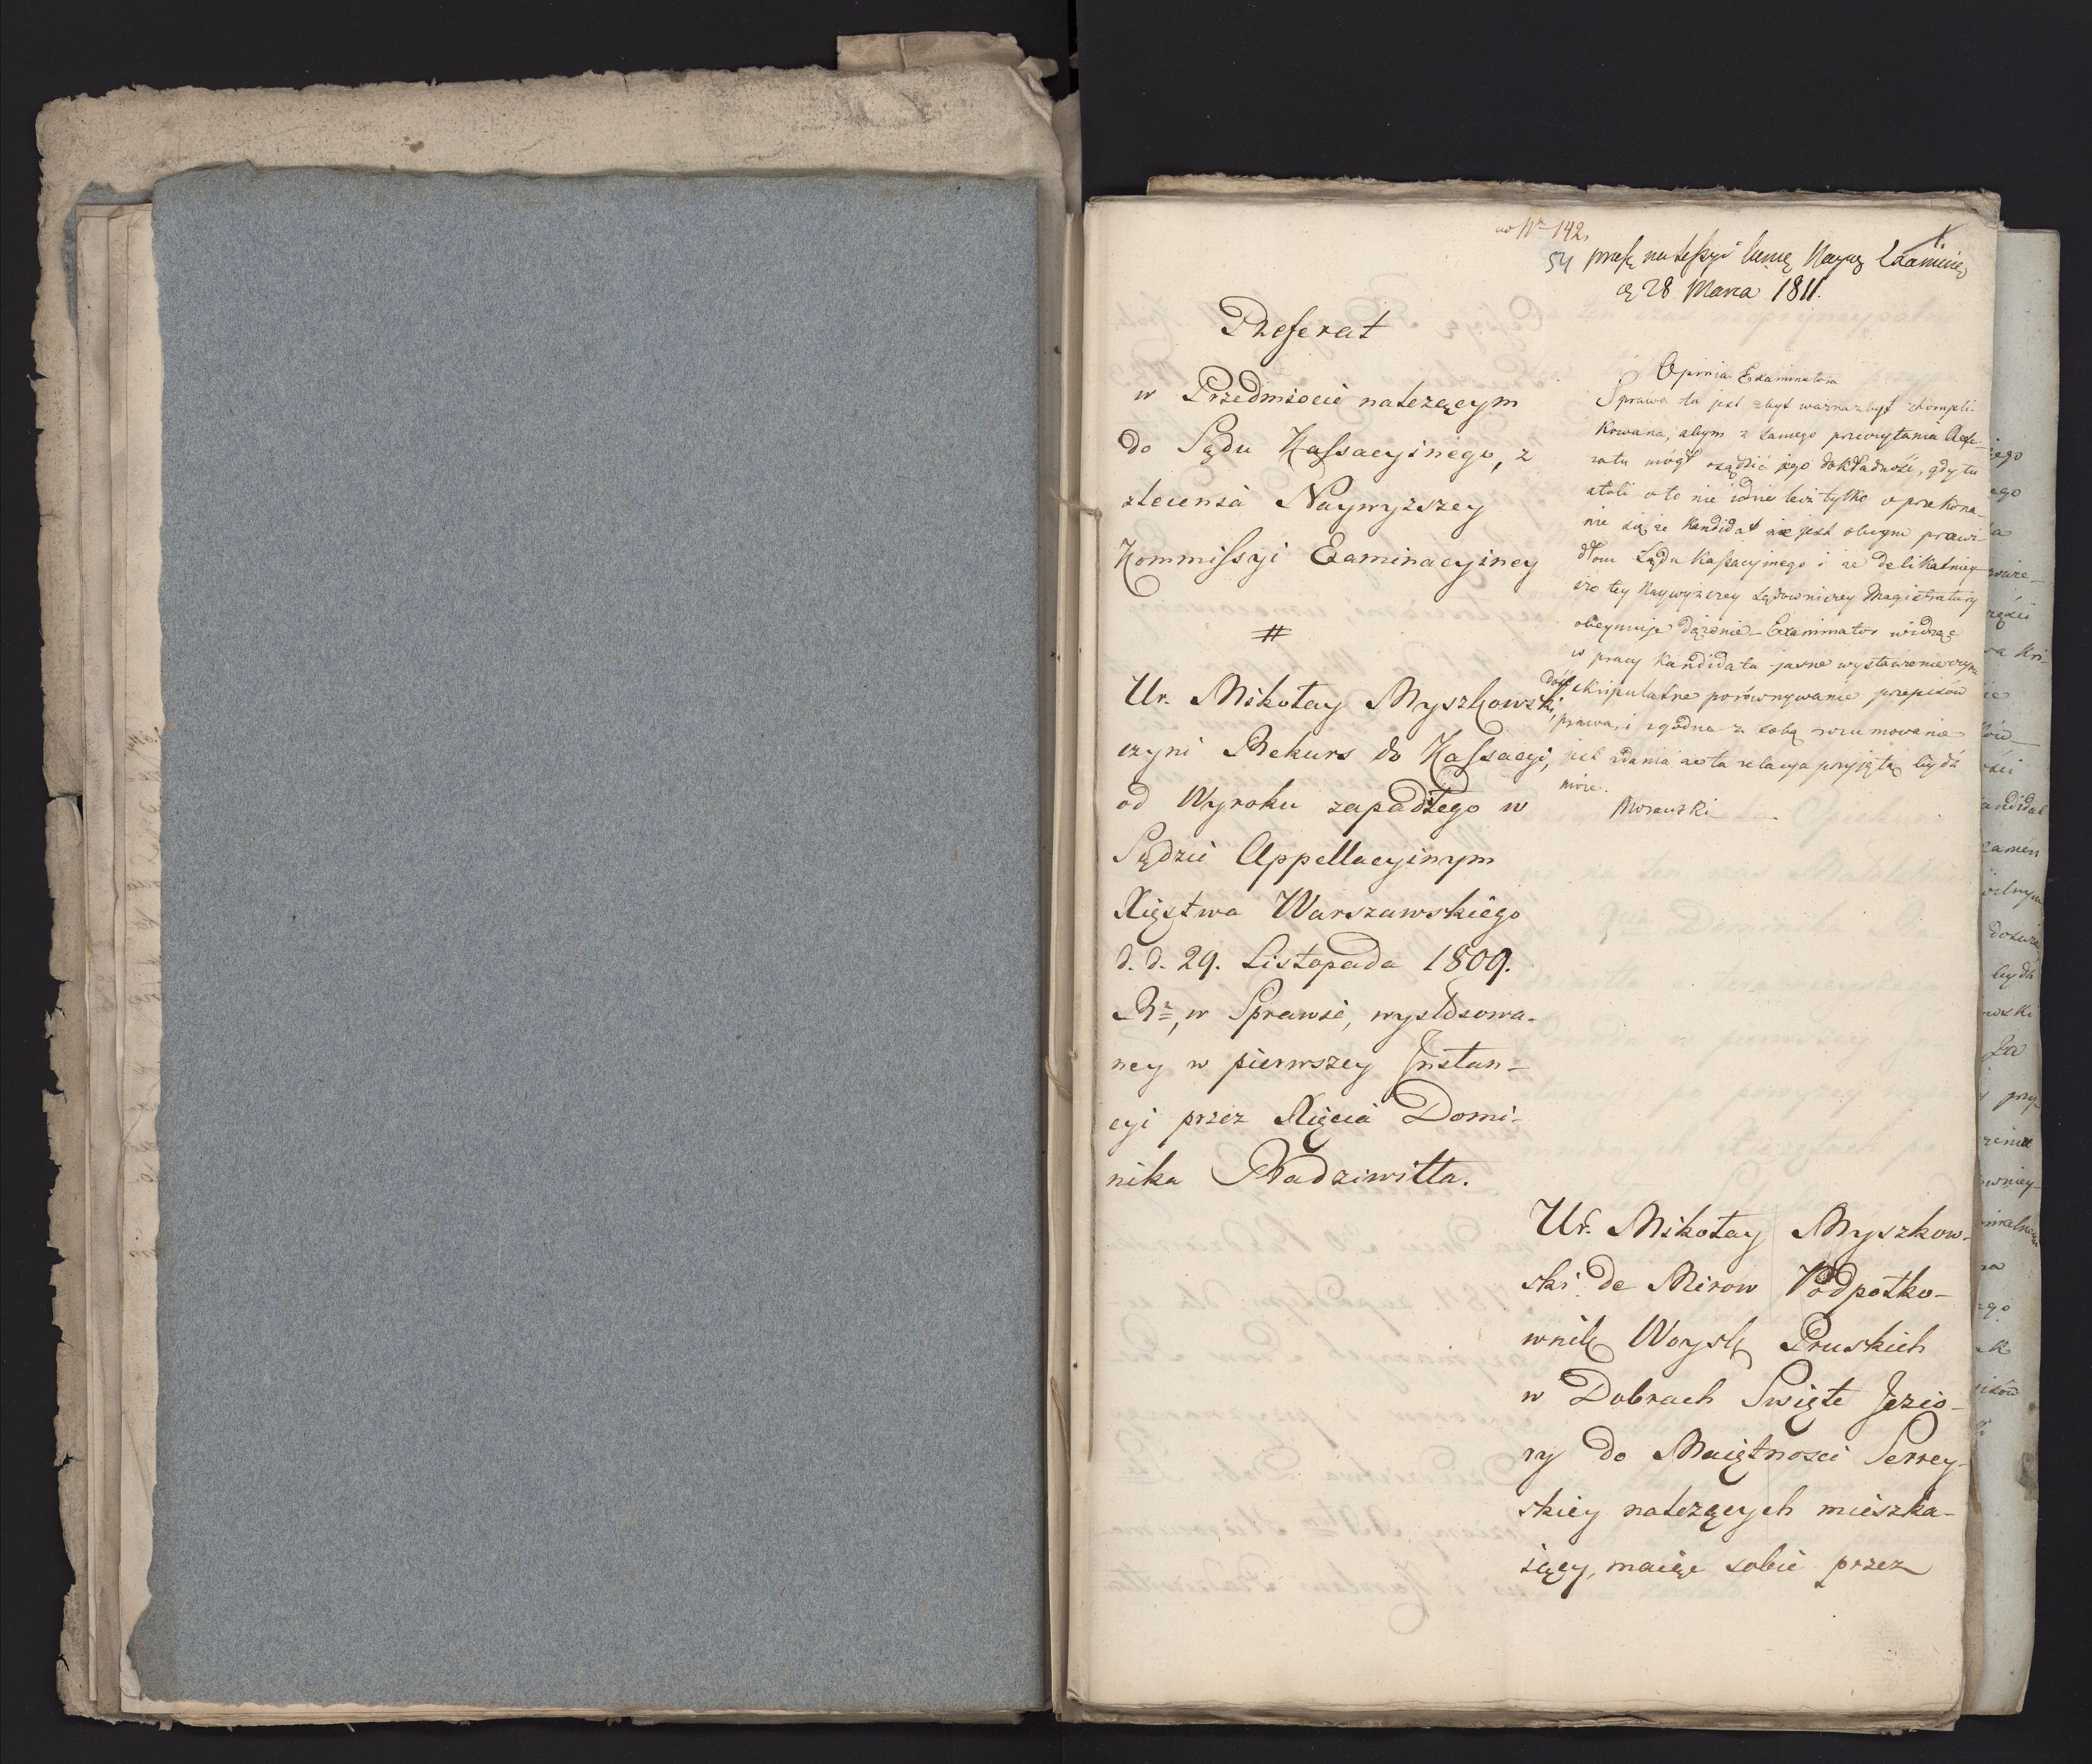 ad Nr 142.
54
28 Marca 1811.
Referat
w Przedmiocie należącym
do Sądu Kassacyinego, z
zlecenia Naywyższey
Kommissyi Examinacyiney
#
Ur. Mikołay Myszkowski,
czyni Rekurs do Kassacyi,
od Wyroku zapadłego w
Sądzie Appellacyinym
Xięstwa Warszawskiego
d. d. 29. Listopada 1809.
Rr., w Sprawie, wytoczoną-
ney w pierwszey Instan-
cyi przez Xięcia Domi-
nika Radziwiłła.
Opinia Examinatora
Sprawa ta jest zbyt ważna zbyt skompli-
kowana, abym z samego przeczytania Refe-
ratu mógł osądzić jego dokładność, gdy tu
atoli o to nie idzie lecz tylko o przekona-
nie się że Kandidat nie jest obcym prawi-
dłom Sądu Kassacyinego i że delikatniey-
sze tey Naywyższey Sądowniczey Magistratury
obeymuje dążenie - Examinator widząc
w pracy Kandidata jasne wystawienie czynu
dość skrupulatne porównywanie przepisów
prawa, i zgodne z sobą rozumowanie
jest zdania że ta relacya przyjętą bydź
może.
Morawski
Ur. Mikołay Myszkow-
ski de Mirow Podpołko-
wnik Woysk Pruskich
w Dobrach Swięte Jezio-
ry do Maiętnosci Serrey-
skiey należących mieszka-
iący, maiąc sobie przez